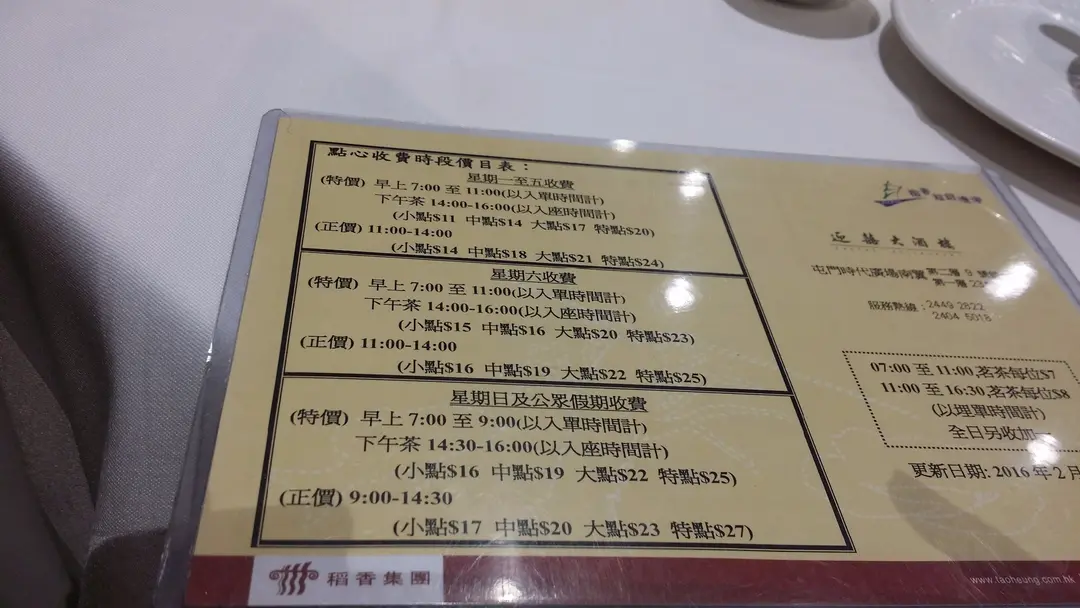 點心收費時段價目表：
星期一至五收費
(特價) 早上 7:00 至 11:00(以入單時間計)
下午茶 14:00-16:00(以入座時間計)
(小點$11 中點$14 大點$17 特點$20)
(正價) 11:00-14:00
(小點$14 中點$18 大點$21 特點$24)
星期六收費
(特價) 早上 7:00 至 11:00(以入單時間計)
下午茶 14:00-16:00(以入座時間計)
(小點$15 中點$16 大點$20 特點$23)
(正價) 11:00-14:00
(小點$16 中點$19 大點$22 特點$25)
星期日及公眾假期收費
(特價) 早上 7:00 至 9:00(以入單時間計)
下午茶 14:30-16:00(以入座時間計)
(小點$16 中點$19 大點$22 特點$25)
(正價) 9:00-14:30
(小點$17 中點$20 大點$23 特點$27)
稻香集團
迎囍大酒樓
屯門時代廣場南翼 第二層 9
第一層
服務熱線 : 2449 2822
2404 5018
07:00 至 11:00,茗茶每位$7
11:00 至 16:30,茗茶每位$8
(以埋單時間計)
全日另收加一
更新日期: 2016 年 2 月
www.taoheung.com.hk